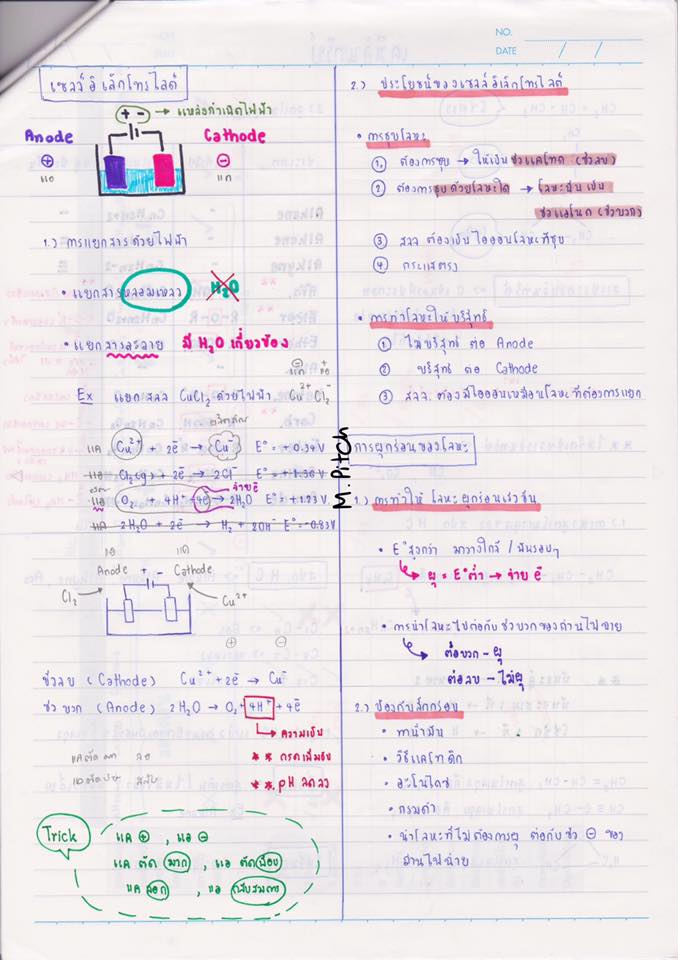 NO.
DATE / /
เซลล์อิเล็กโทรไลต์
+ - → แหล่งกำเนิดไฟฟ้า
Anode Cathode
⊕ ⊖
แอ แค
1.) การแยกสารด้วยไฟฟ้า
• แยกสารหลอมเหลว H₂O
• แยกสารละลาย มี H₂O เกี่ยวข้อง
⊖ +
Ex แยก สลล CuCl₂ ด้วยไฟฟ้า Cu²⁺ Cl₂⁻
แค Cu²⁺ + 2e⁻ → Cu⁻ E° = +0.34 V
แอ Cl₂(g) + 2e⁻ → 2Cl⁻ E° = +1.36 V
จ่าย e⁻
แอ O₂ + 4H⁺ + 4e⁻ → 2H₂O E° = +1.23 V
แค 2H₂O + 2e⁻ → H₂ + 2OH⁻ E° = -0.83 V
แอ แค
Anode + - Cathode
Cl₂ Cu²⁺
⊕ ⊖
ขั้วลบ (Cathode) Cu²⁺ + 2e⁻ → Cu⁻
ขั้วบวก (Anode) 2H₂O → O₂ + 4H⁺ + 4e⁻
→ ความเข้ม
** กรดเพิ่มขึ้น
** pH ลดลง
Trick
แค ⊕ , แอ ⊖
แค ตัด มาก , แอ ตัด น้อย
แค ลอก , แอ กลับสมการ
M.Pitch
2.) ประโยชน์ของเซลล์อิเล็กโทรไลต์
• การชุบโลหะ
① ต้องการชุบ → ให้เป็นขั้วแคโทด (ขั้วลบ)
② ต้องการชุบด้วยโลหะใด → โลหะนั้นเป็น
ขั้วแอโนด (ขั้วบวก)
③ สลล ต้องเป็นไอออนโลหะที่ชุบ
④ กระแสตรง
• การทำโลหะให้บริสุทธิ์
① ไม่บริสุทธิ์ ต่อ Anode
② บริสุทธิ์ ต่อ Cathode
③ สลล. ต้องมีไอออนเหมือนโลหะที่ต้องการแยก
การผุกร่อนของโลหะ
1.) การทำให้โลหะผุกร่อนเร็วขึ้น
• E° สูงกว่า มาวางใกล้ / พันรอบๆ
→ ผุ = E° ต่ำ → จ่าย e⁻
• การนำโลหะไปต่อกับขั้วบวกของถ่านไฟฉาย
→ ต่อบวก - ผุ
ต่อลบ - ไม่ผุ
2.) ป้องกันสึกกร่อน
• ทาน้ำมัน
• วิธีแคโทดิก
• อะโนไดซ์
• รมดำ
• นำโลหะที่ไม่ต้องการผุ ต่อกับขั้ว ⊖ ของ
ถ่านไฟฉาย